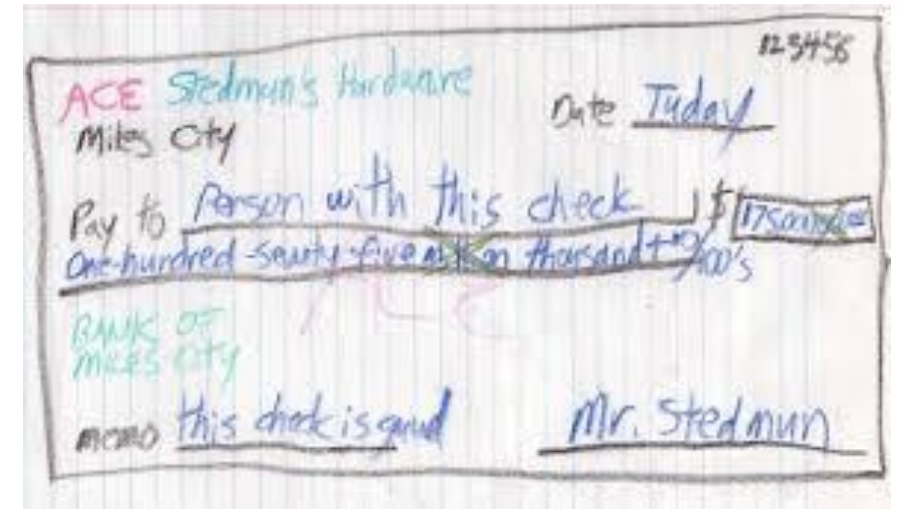 123456
ACE Stedmun's Hardware
Date Tuday
Miles City
Pay to Person with this check $
One-hundred-seventy-five million thousand + 00/100's
ACE
BANK OF
MILES CITY
memo this check is guud
Mr. Stedmun